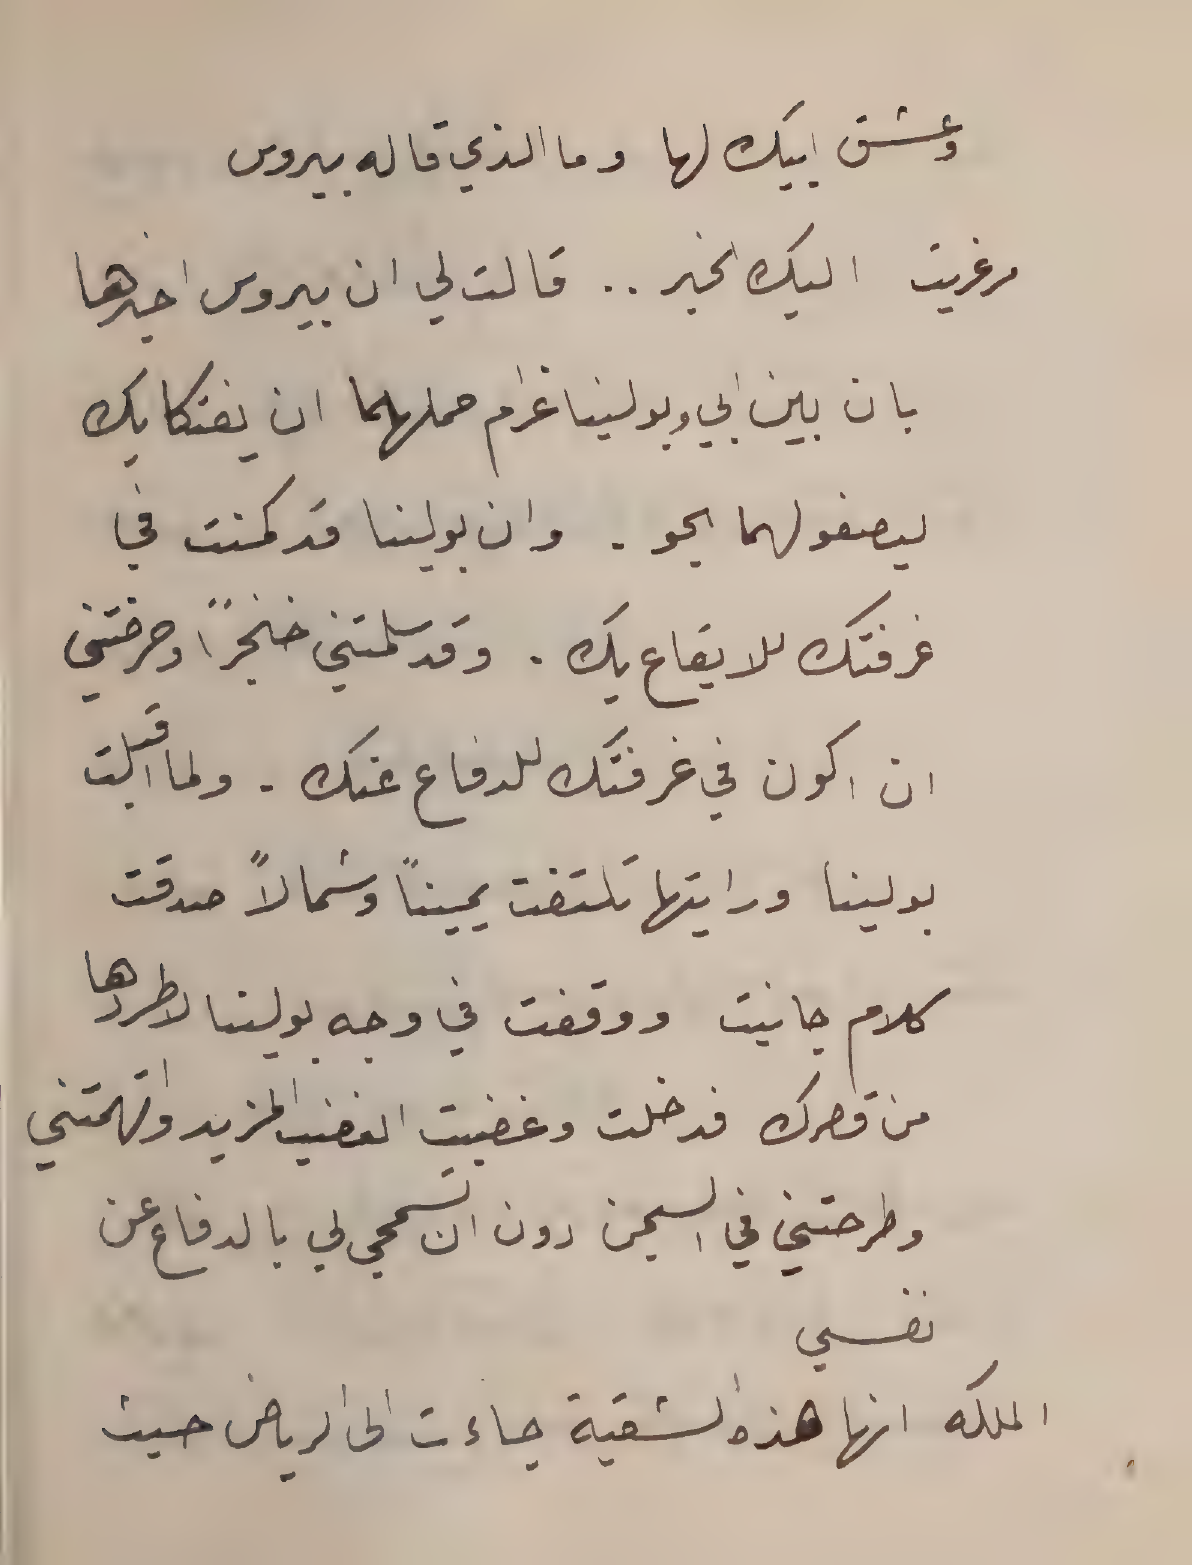 وعشق ابيك لها وما الذي قاله بيروس
مرغريت اليك الخبر .. قالت لي ان بيروس اخبرها
بان بين ابي وبولينا غرام حملهما ان يفتكا بك
ليصفو لهما الجو . وان بولينا قد كمنت في
غرفتك للايقاع بك . وقد سلمتني خنجراً وحرضتني
ان اكون في غرفتك للدفاع عنك . ولما اقبلت
بولينا ورايتها تلتفت يميناً وشمالاً صدقت
كلام جانيت ووقفت في وجه بولينا لاطردها
من قصرك فدخلت وغضبت الغضب المزيد واتهمتني
وطرحتني في السجن دون ان تسمحي لي بالدفاع عن
نفسي
الملكه انها هذه الشقية جاءت الى الرياض حيث